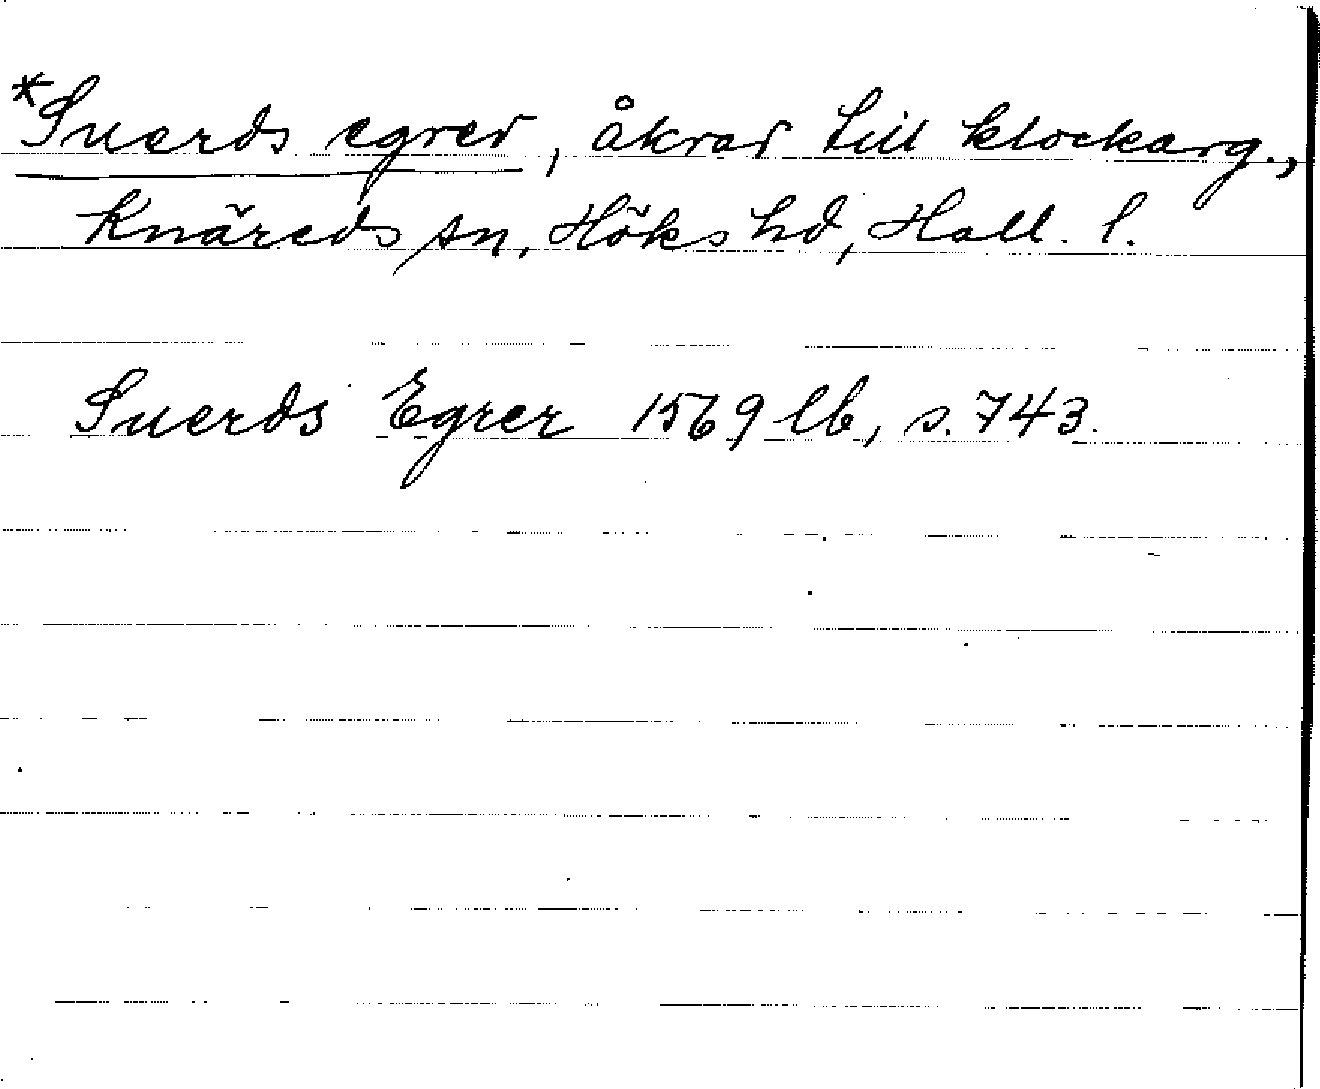 *Suerds egrer, åkrar till klockarg.,
Knäreds sn, Höks hd, Hall. l.
Suerds Egrer 1569 lb, s. 743.